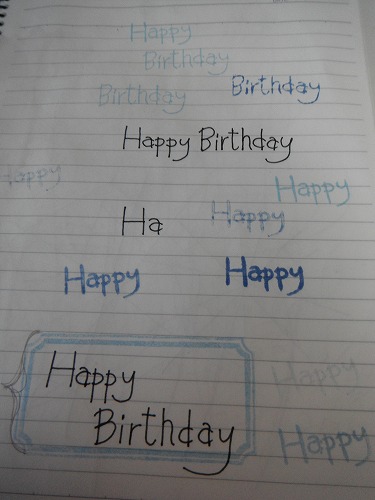 Happy
Birthday
Birthday
Birthday
Happy Birthday
Happy
Happy
Ha
Happy
Happy
Happy
Happy
Birthday
Happy
Happy